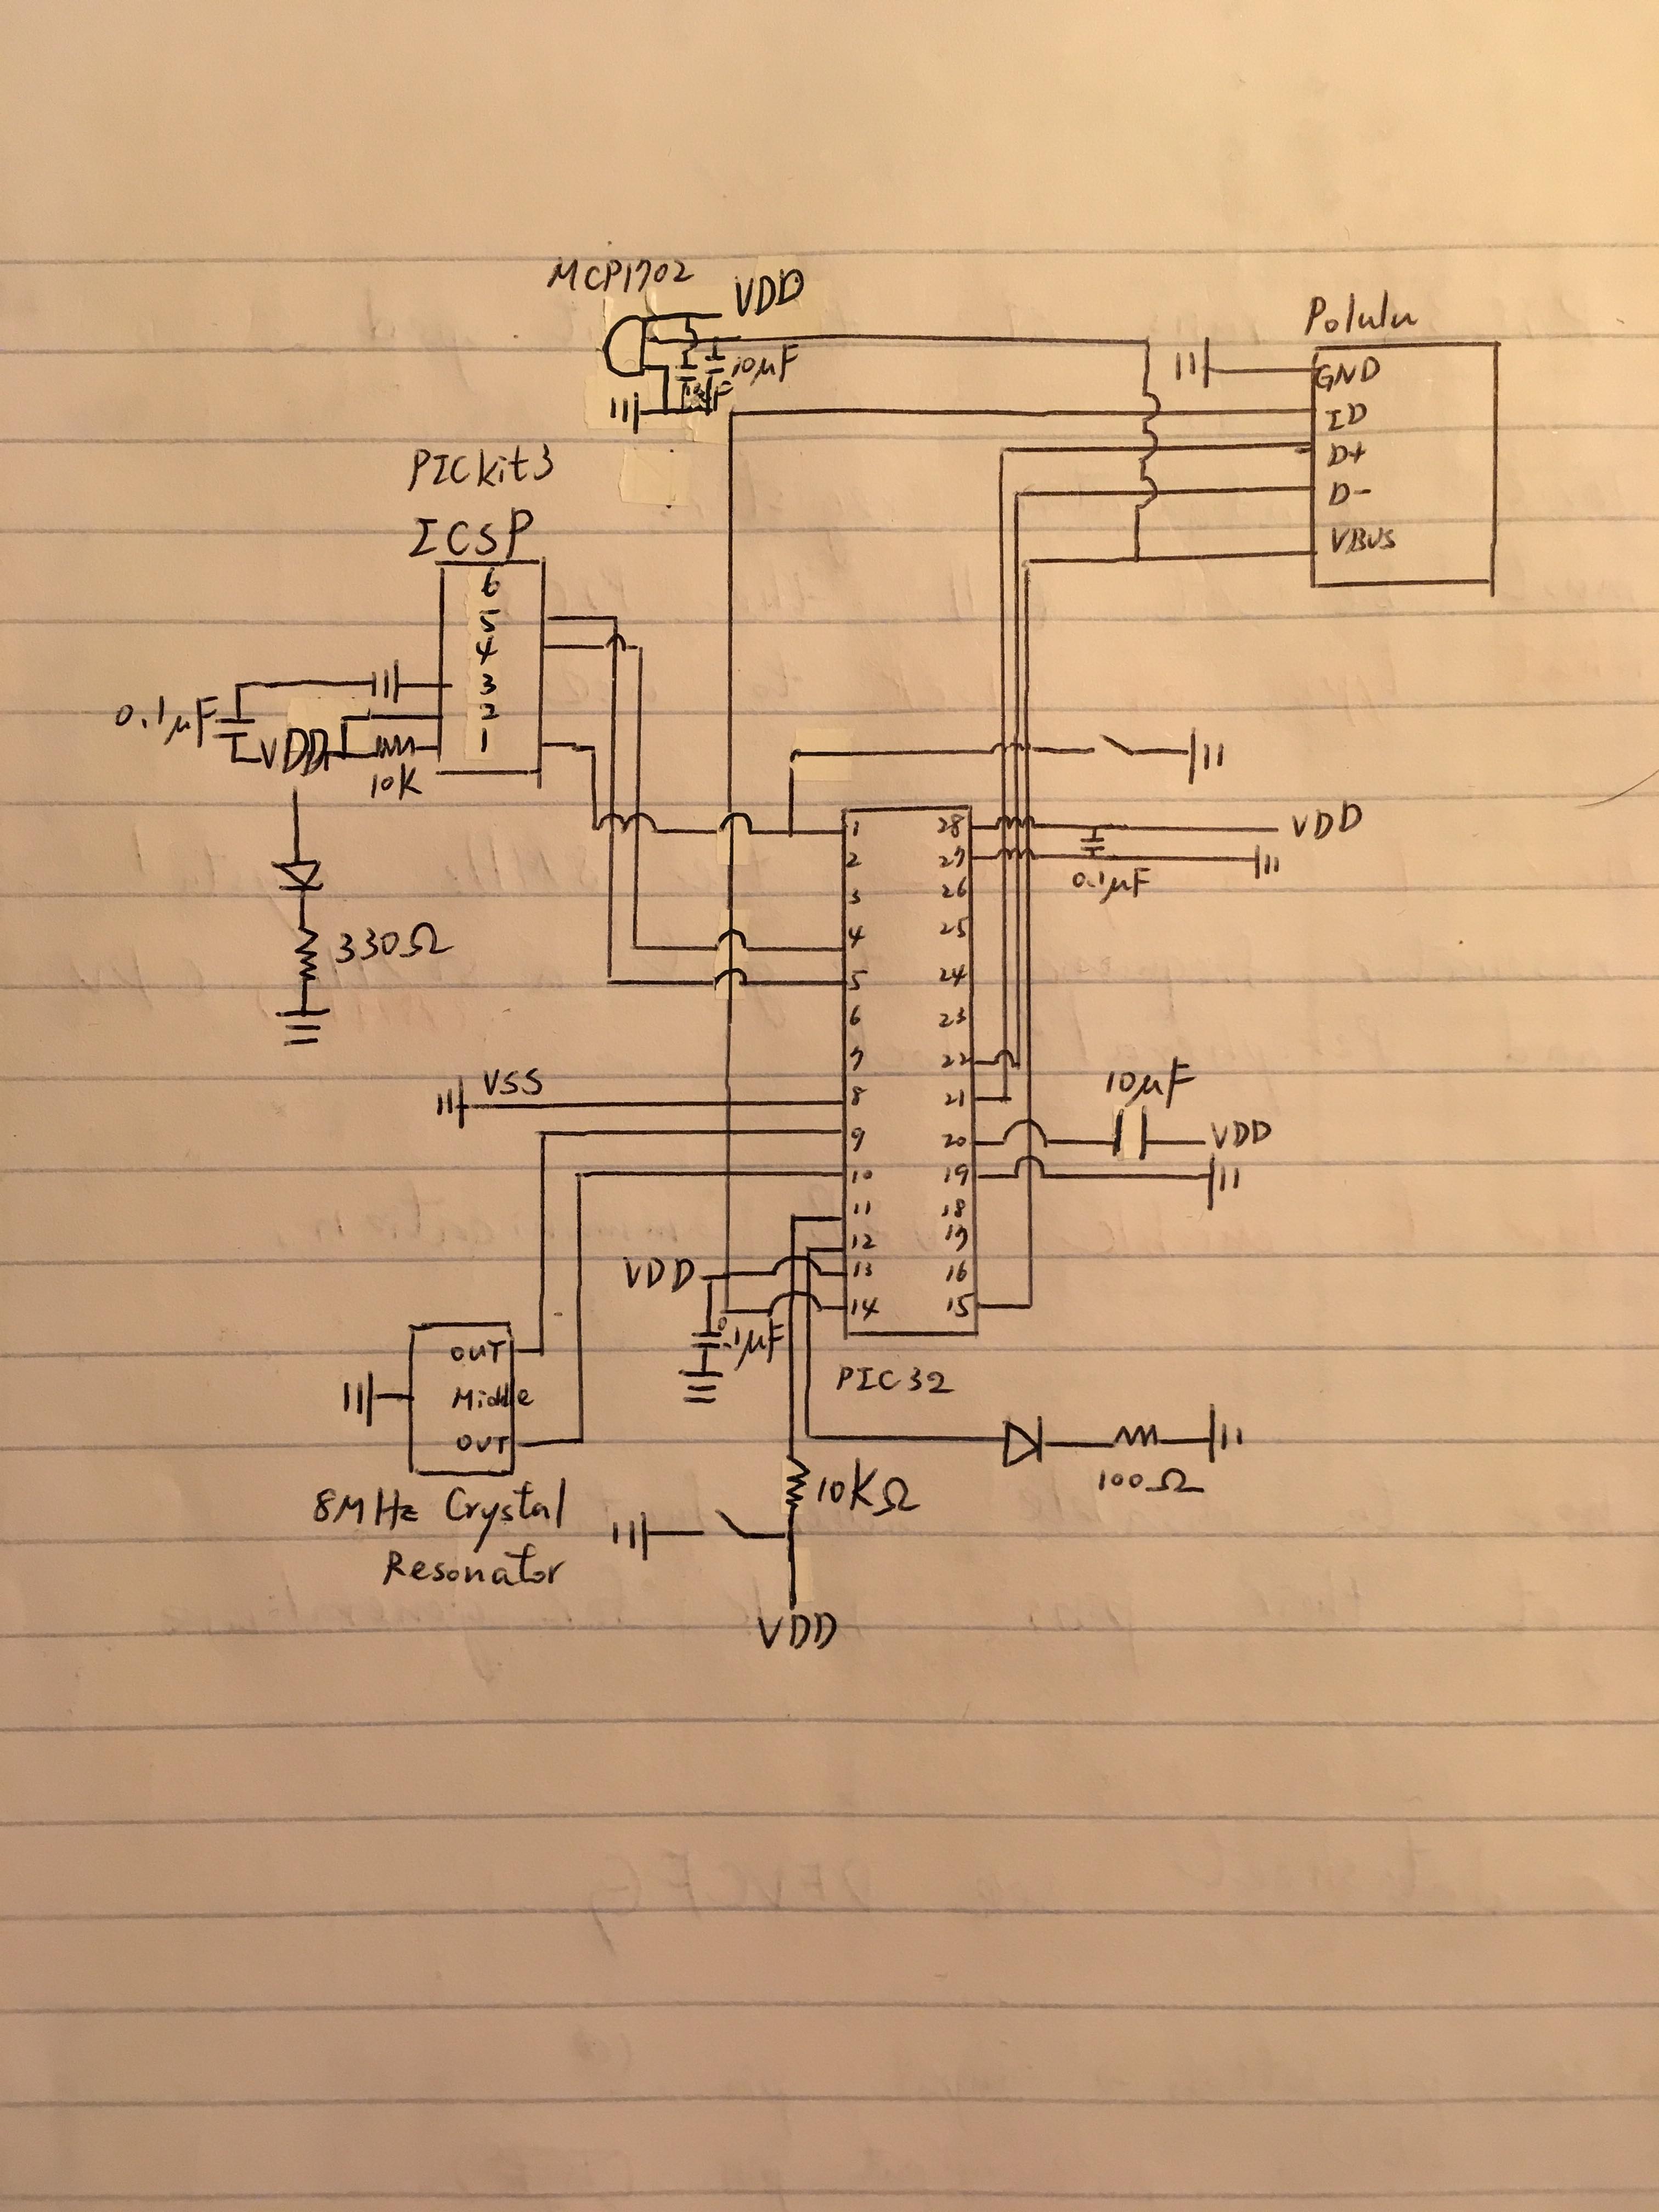 MCP1702
VDD
10µF
Polulu
GND
ID
D+
D-
VBUS
PICkit3
ICSP
6
5
4
3
2
1
0.1µF
VDD
10K
330Ω
1
2
3
4
5
6
7
8
9
10
11
12
13
14
28
27
26
25
24
23
22
21
20
19
18
17
16
15
PIC32
VDD
0.1µF
VSS
10µF
VDD
VDD
0.1µF
OUT
Middle
OUT
8MHz Crystal
Resonator
100Ω
10KΩ
VDD